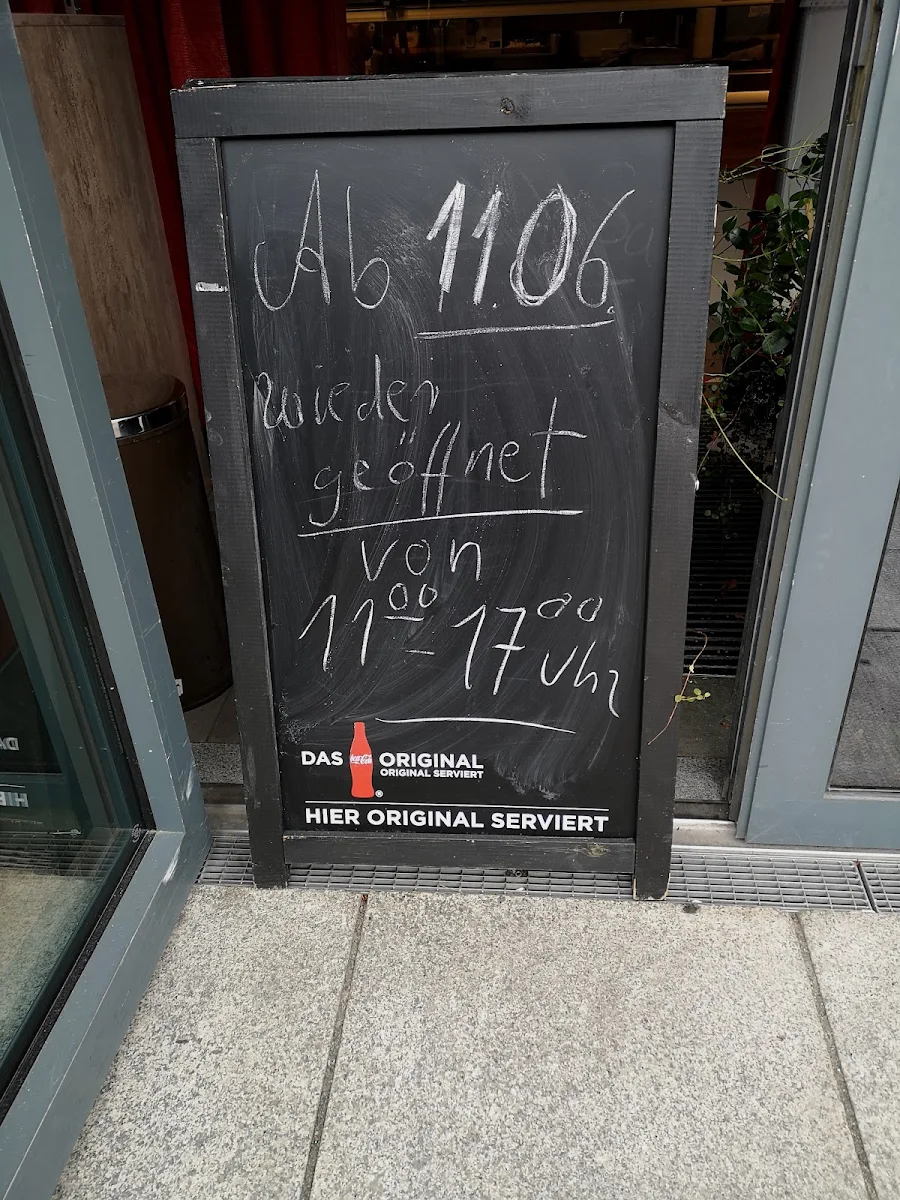 Ab 11.06.
wieder
geöffnet
von
11⁰⁰ - 17⁰⁰ Uhr
DAS Coca-Cola ® ORIGINAL
ORIGINAL SERVIERT
HIER ORIGINAL SERVIERT
DA
HIE